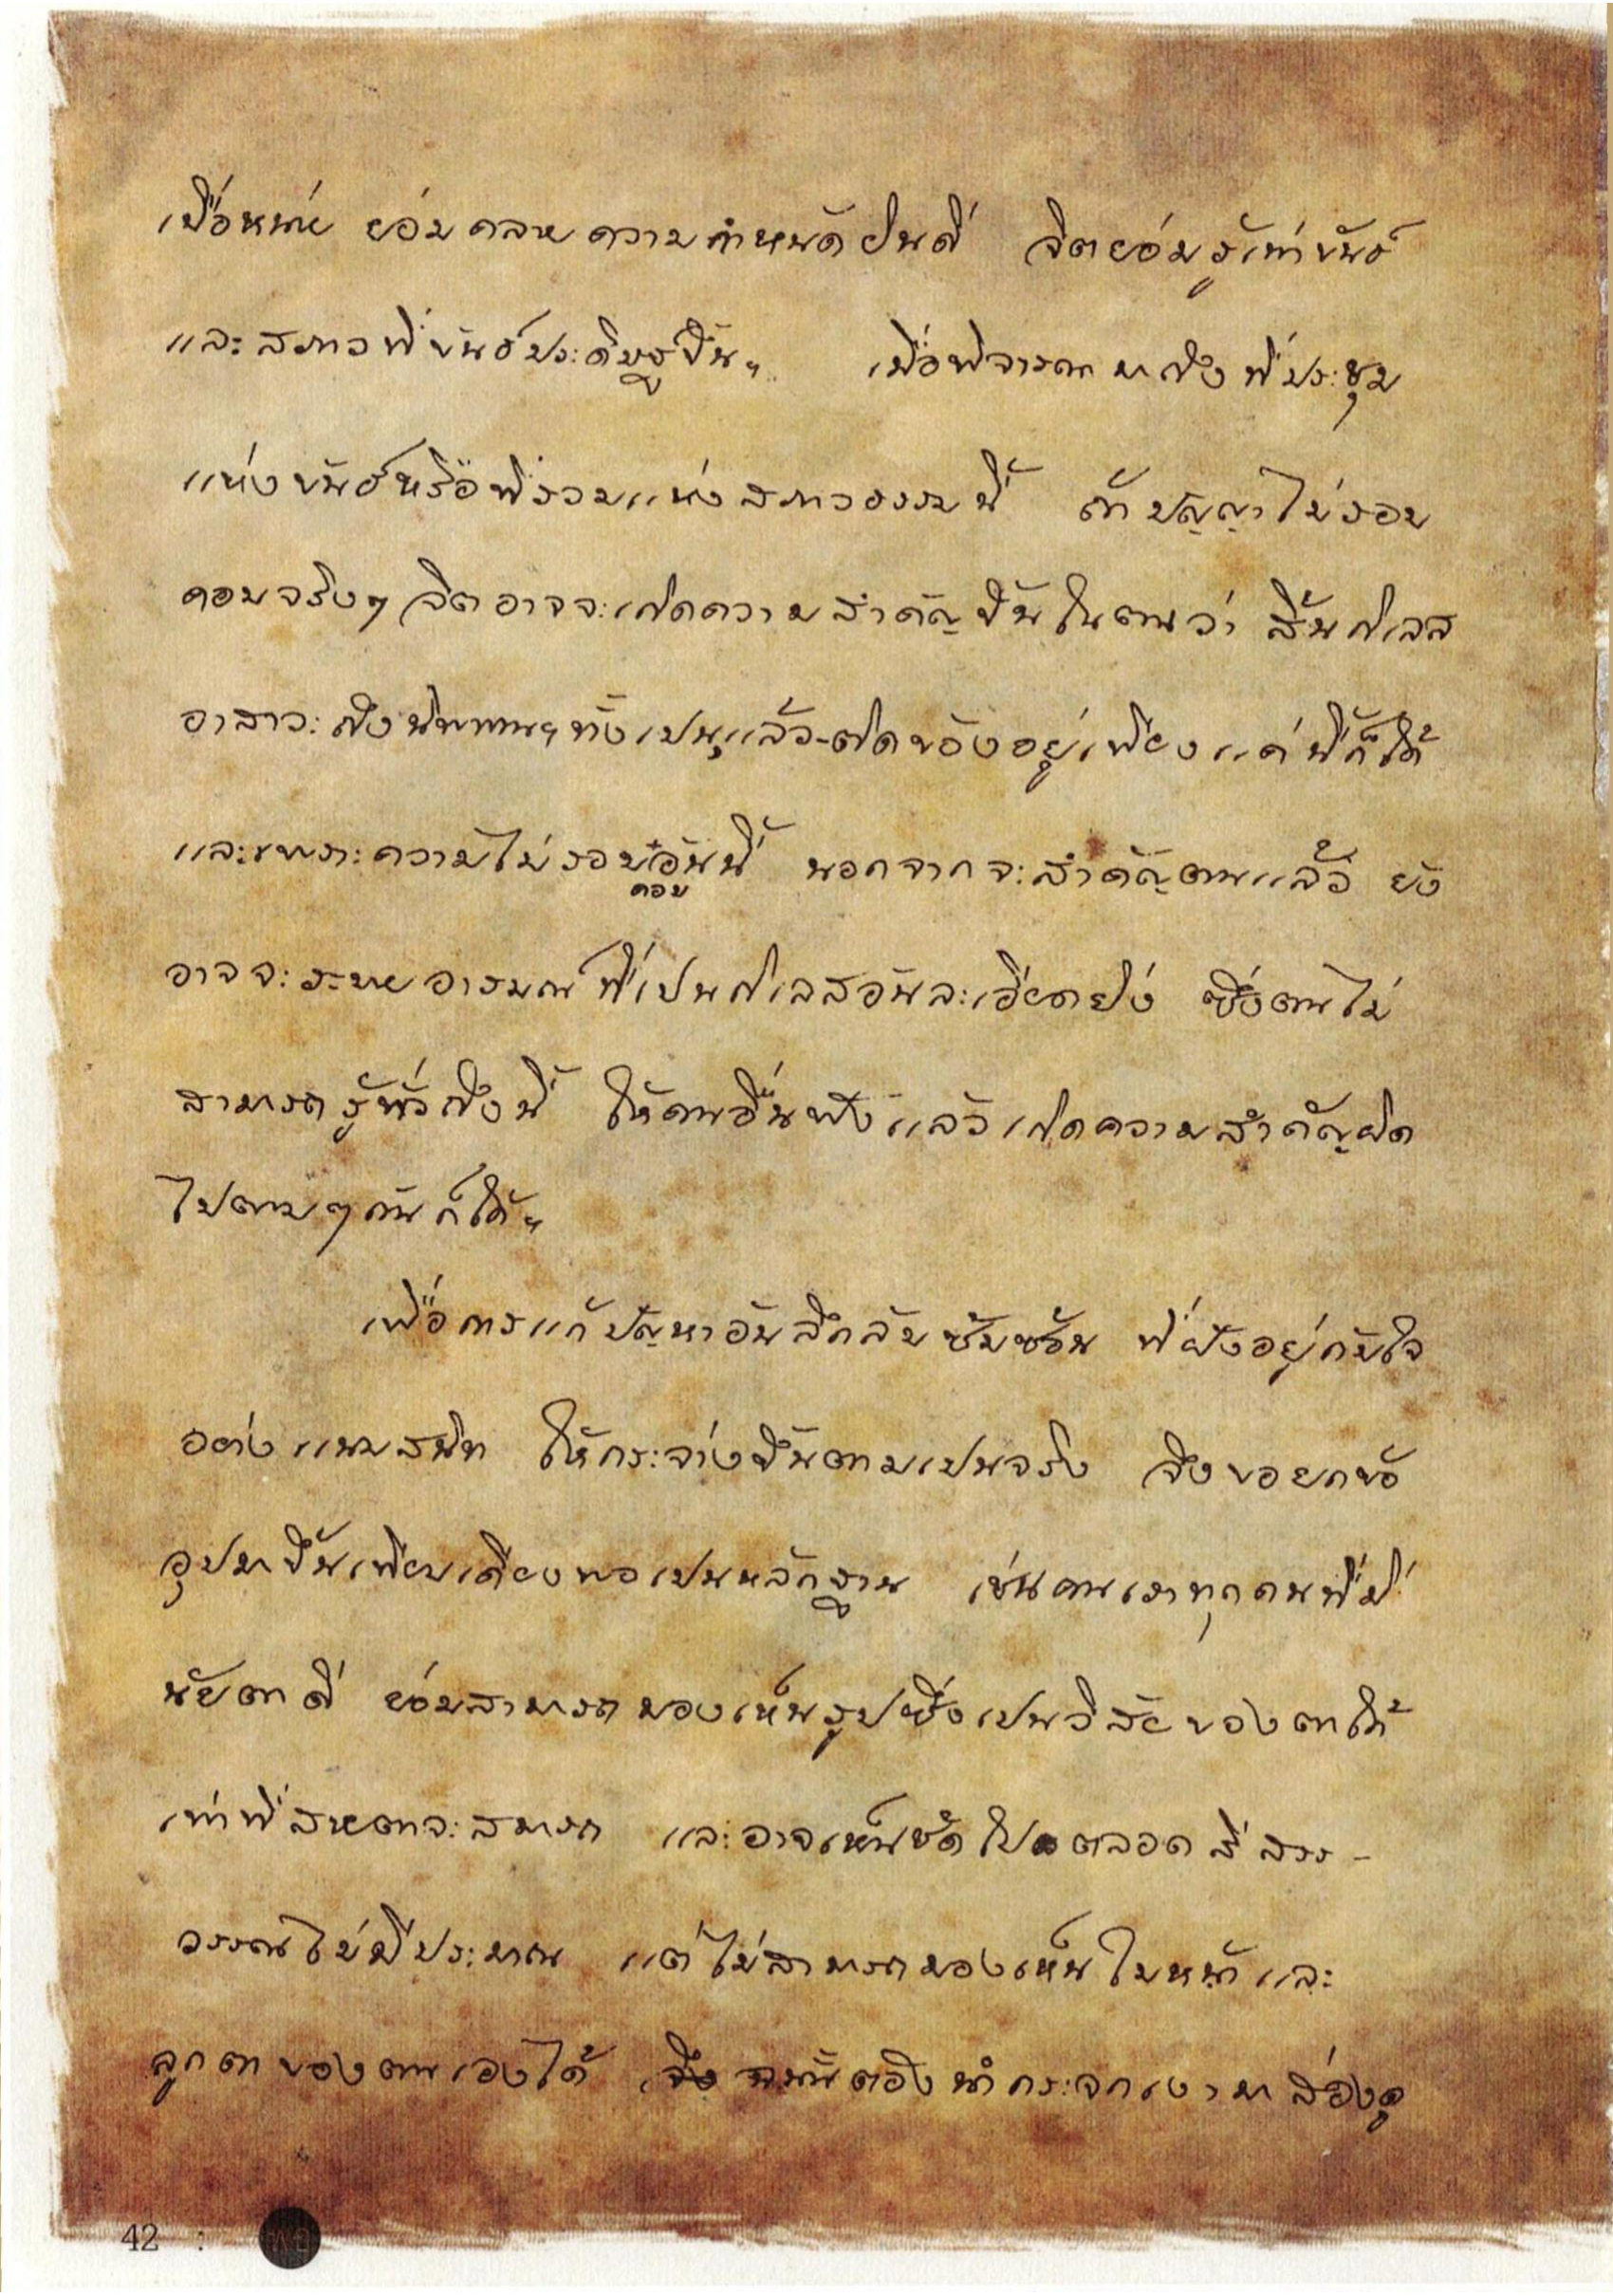 เบื่อหน่าย ย่อมคลายความกำหนัดยินดี จิตย่อมรู้เท่าขันธ์
และสภาวที่ขันธ์ประดิษฐ์ขึ้นฯ เมื่อพิจารณามาถึงที่ประชุม
แห่งขันธ์หรือที่รวมแห่งสภาวธรรมนี้ ถ้าปัญญาไม่รอบ
คอบจริงๆ จิตอาจจะเกิดความสำคัญขึ้นในตนว่า สิ้นกิเลส
อาสาวะถึงนิพพานฯทั้งเปนแล้ว-ติดข้องอยู่เพียงแค่นี้ก็ได้
และเพราะความไม่รอบคอบอันนี้ นอกจากจะสำคัญตนแล้ว ยัง
อาจจะระบายอารมณ์ที่เปนกิเลสอันละเอียดยิ่ง ซึ่งตนไม่
สามารถรู้ทั่วถึงนี้ ให้คนอื่นฟังแล้วเกิดความสำคัญผิด
ไปตามๆกันก็ได้ฯ
เพื่อการแก้ปัญหาอันลึกลับซับซ้อน ที่ฝังอยู่กับใจ
อย่างแนบสนิท ให้กระจ่างขึ้นตามเปนจริง จึงขอยกข้อ
อุปมาขึ้นเทียบเคียงพอเปนหลักฐาน เช่นคนเราทุกคนที่มี
นัยตาดี ย่อมสามารถมองเห็นรูปซึ่งเปนวิสัยของตาได้
เท่าที่สายตาจะสามารถ และอาจเห็นชัดไปตลอดสีสรร-
วรรณไม่มีประมาณ แต่ไม่สามารถมองเห็นใบหน้าและ
ลูกตาของตนเองได้ ฉนั้นต้องนำกระจกเงามาส่องดู
42 :